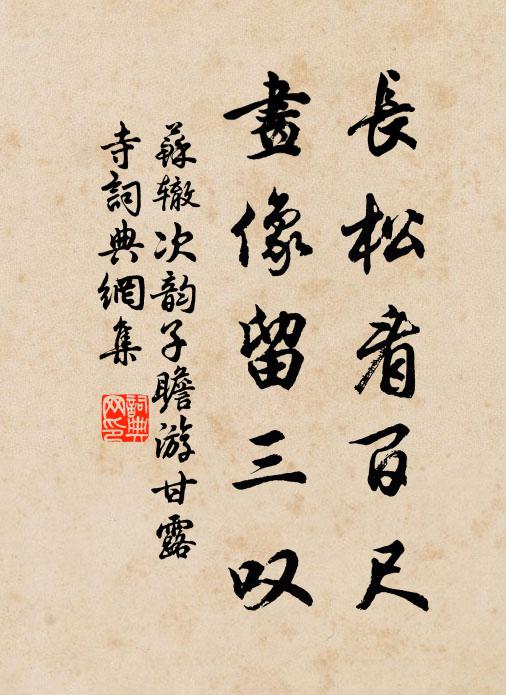 長松看百尺
畫像留三叹
蘇辙次韵子瞻游甘露
寺詞典網集
詞典
网印